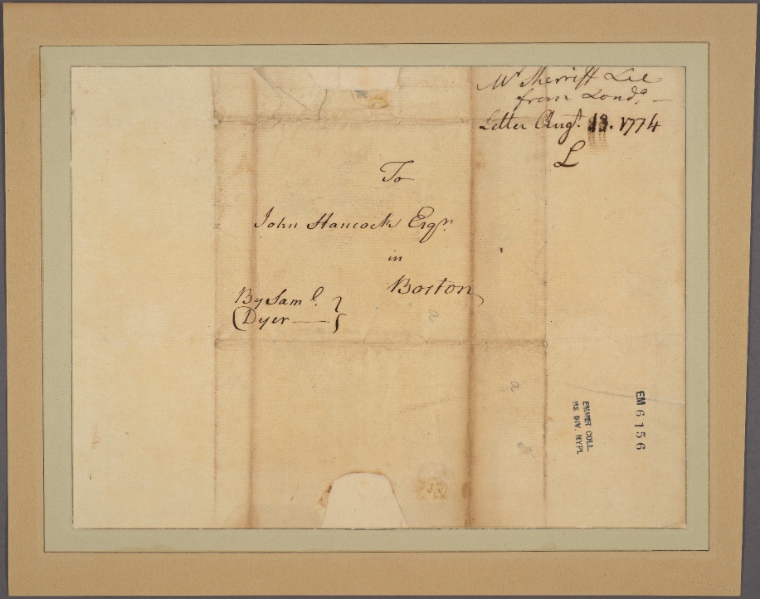 Mr. Sherriff Lee
from Londo. —
Letter Augt. 13. 1774
L
To
John Hancock Esqr.
in
Boston
By Saml. }
(Dyer — }
a
a
EM 6156
EMMET COLL.
MS DIV. NYPL